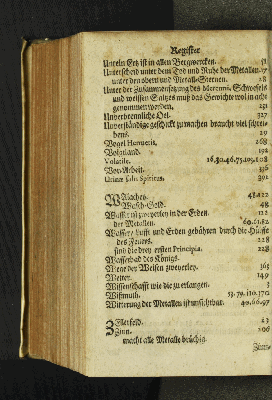 Register
Unrein Ertz ist in allen Bergwercken. 51
Unterscheid unter dem Tod und Ruhe der Metallen. 17
unter den obern und Metall-Sternen. 28
Unter der Zusammensetzung des Schwefels
und weissen Saltzes muß das Gewichte wol in acht
genommen werden. 231
Unverbrennliche Oel. 327
Unverständige geschickt zu machen braucht viel schrei-
bens. 29
Vogel Hermetis. 268
Voigtland. 192
Volatile. 16.30.46.75.105.108
Vor-Arbeit. 336
Urinæ sch. Spiritus. 391
Walachey. 48.122
Wasch-Gold. 48
Wasser ist zweyerley in der Erden. 112
der Metallen. 60.61.82
Wasser, Lufft und Erden gebähren durch die Hülffe
des Feuers. 228
sind die drey ersten Principia. 228
Wasserbad des Königs.
Wege der Weisen zweyerley. 363
Wetter. 149
Wissenschafft wie die zu erlangen. 3
Wißmuth. 53.79.110.170
Witterung der Metallen ist unsichtbar. 40.60.97
Zellerfeld. 23
Zinn. 106
macht alle Metalle brüchig.
Zinn-